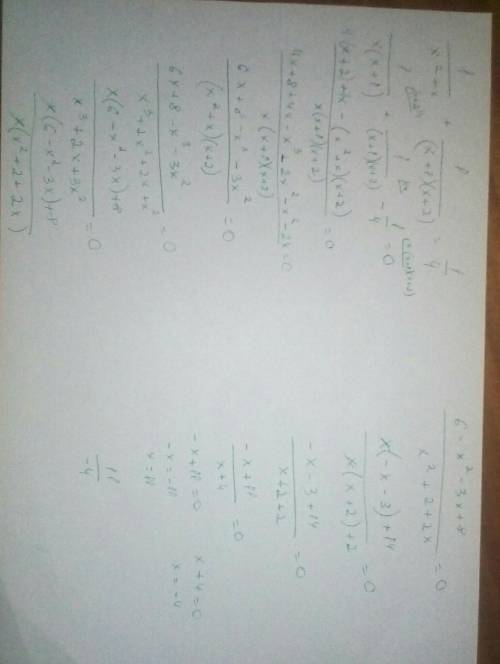 1/(x²+x) + 1/((x+1)(x+2)) = 1/4
1/(x(x+1)) + 1/((x+1)(x+2)) - 1/4 = 0
(4(x+2)+4x-(x²+x)(x+2))/(x(x+1)(x+2)) = 0
(4x+8+4x-x³-2x²-x²-2x)/(x(x+1)(x+2)) = 0
(6x+8-x³-3x²)/((x²+x)(x+2)) = 0
(6x+8-x³-3x²)/(x³+2x²+2x+x²) = 0
(x(6-x²-3x)+8)/(x³+2x+3x²) = 0
(x(6-x²-3x)+8)/(x(x²+2+2x))
(6-x²-3x+8)/(x²+2+2x) = 0
(x(-x-3)+14)/(x(x+2)+2) = 0
(-x-3+14)/(x+2+2) = 0
(-x+11)/(x+4) = 0
-x+11=0 x+4=0
-x=-11 x=-4
x=11
11/-4